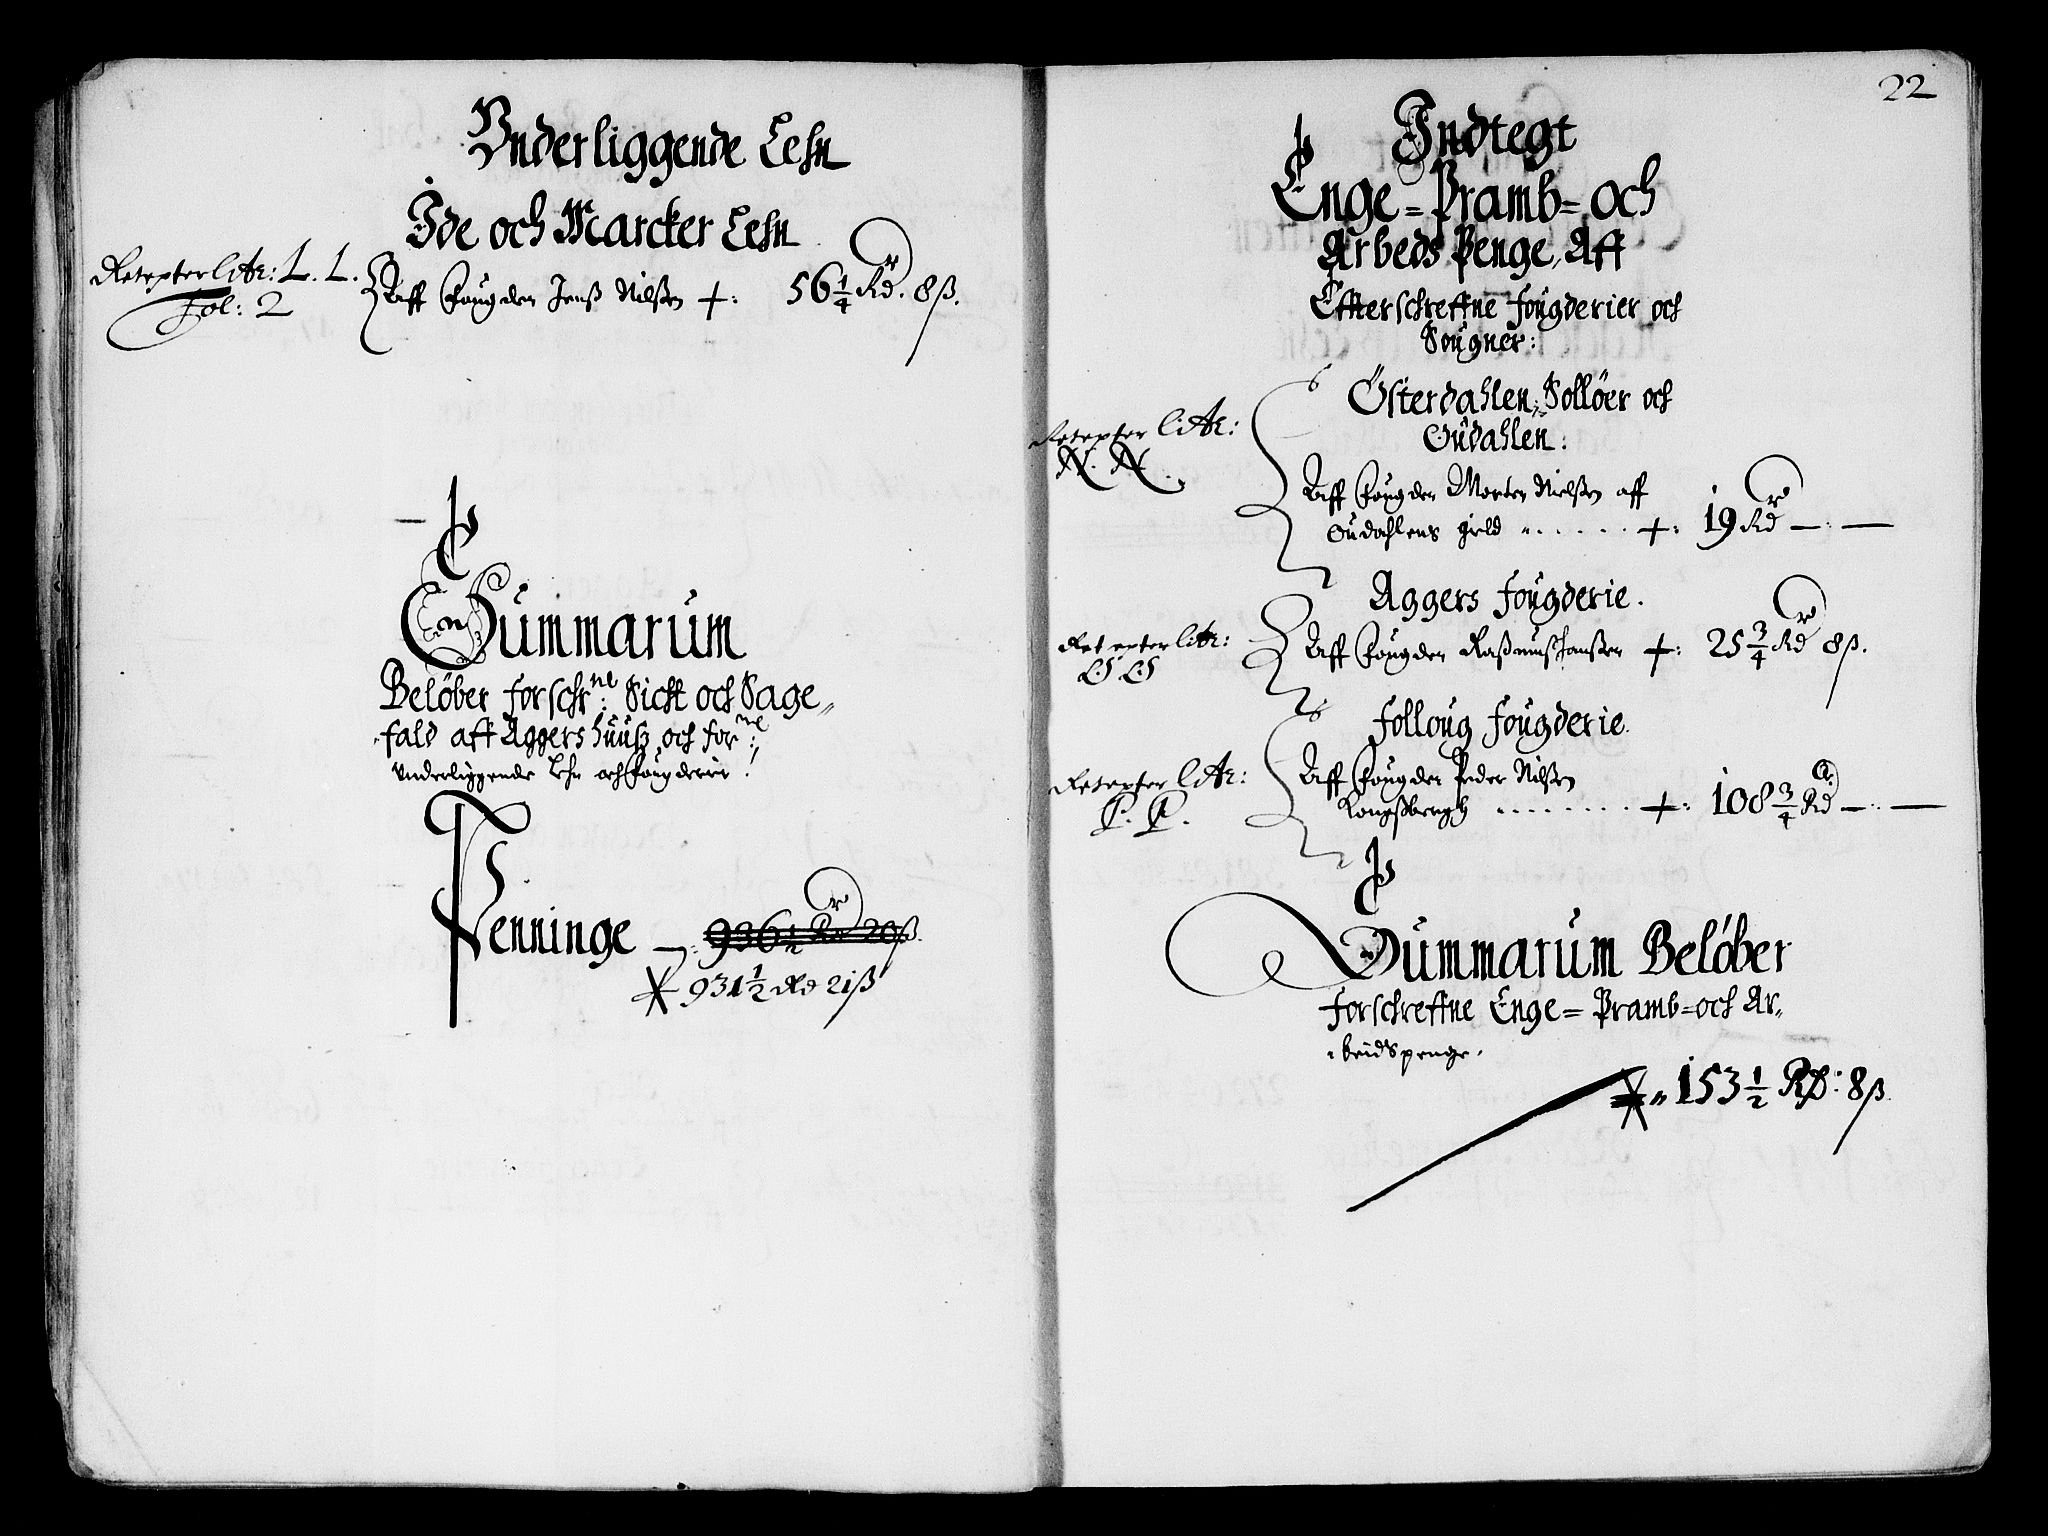 Underliggende Lehn
Ide och Marcker Lehn
Recepter litr: L. L.
Fol: 2
Aff Fougden Jenß Nilßen +: 56 1/4 Rdr. 8 ß.
Summarum
Beløber forschr:ne Sicht och Sage„
fald aff Aggershuuß och for:ne
Underliggende Lehn och Fougderier:
Penninge —: 936 1/2 Rdr 20 ß.
931 1/2 Rd 21 ß
22
Indtegt
Enge= Pramb= och
Arbeds Penge, Aff
Effterschreffne Fougderier och
Sougner:
Østerdahlen, Solløer och
Oudahlen:
Recepter litr:
N. N.
Aff Fougden Morten Nielßen aff
Oudahlens gield ...... +: 19 Rdr —:—
Aggers Fougderie.
Recepter litr:
O O
Aff Fougden Raßmuß Hanßen +: 25 3/4 Rdr 8 ß.
Folloug Fougderie.
Recepter litr:
P. P.
Aff Fougden Peder Nilßen
Kongßbergh ........ +: 108 3/4 Rdr —:—
Summarum Beløber
forschreffne Enge= Pramb= och Ar„
beidspenge.
153 1/2 RD: 8 ß.